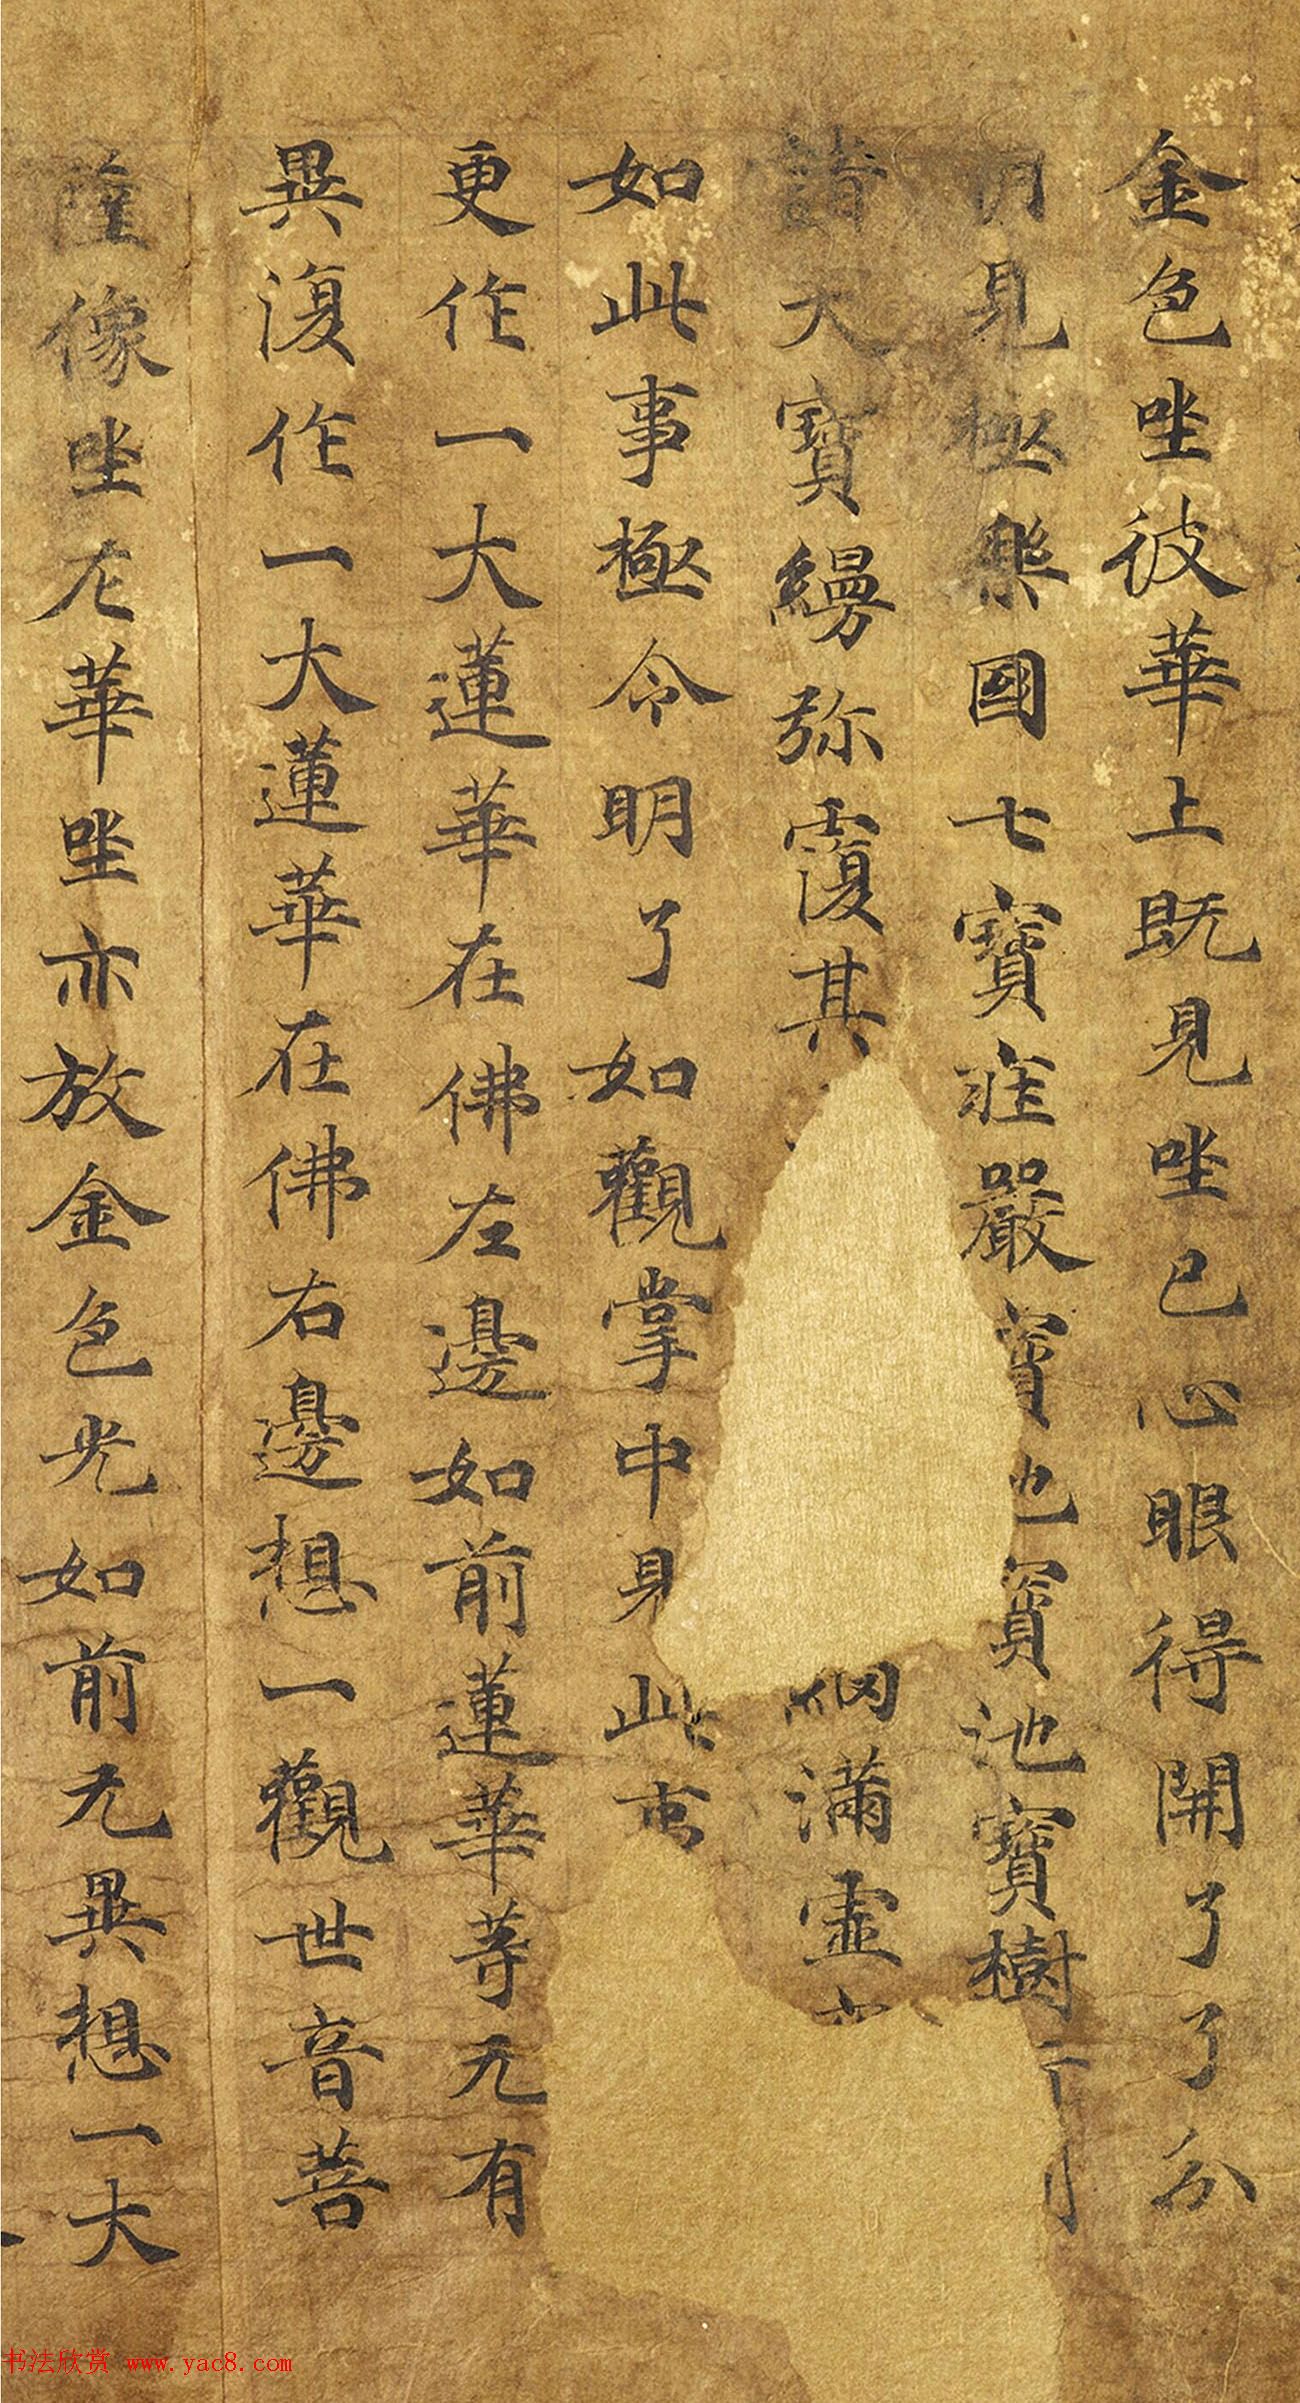 金色坐彼華上既見坐已心眼得開了了分
明見極樂國七寶莊嚴寶地寶池寶樹
諸天寶縵弥覆其網滿虛
如此事極令明了如觀掌中見此
更作一大蓮華在佛左邊如前蓮華等无有
異復作一大蓮華在佛右邊想一觀世音菩
薩像坐左華坐亦放金色光如前无異想一大
书法欣赏 www.yac8.com